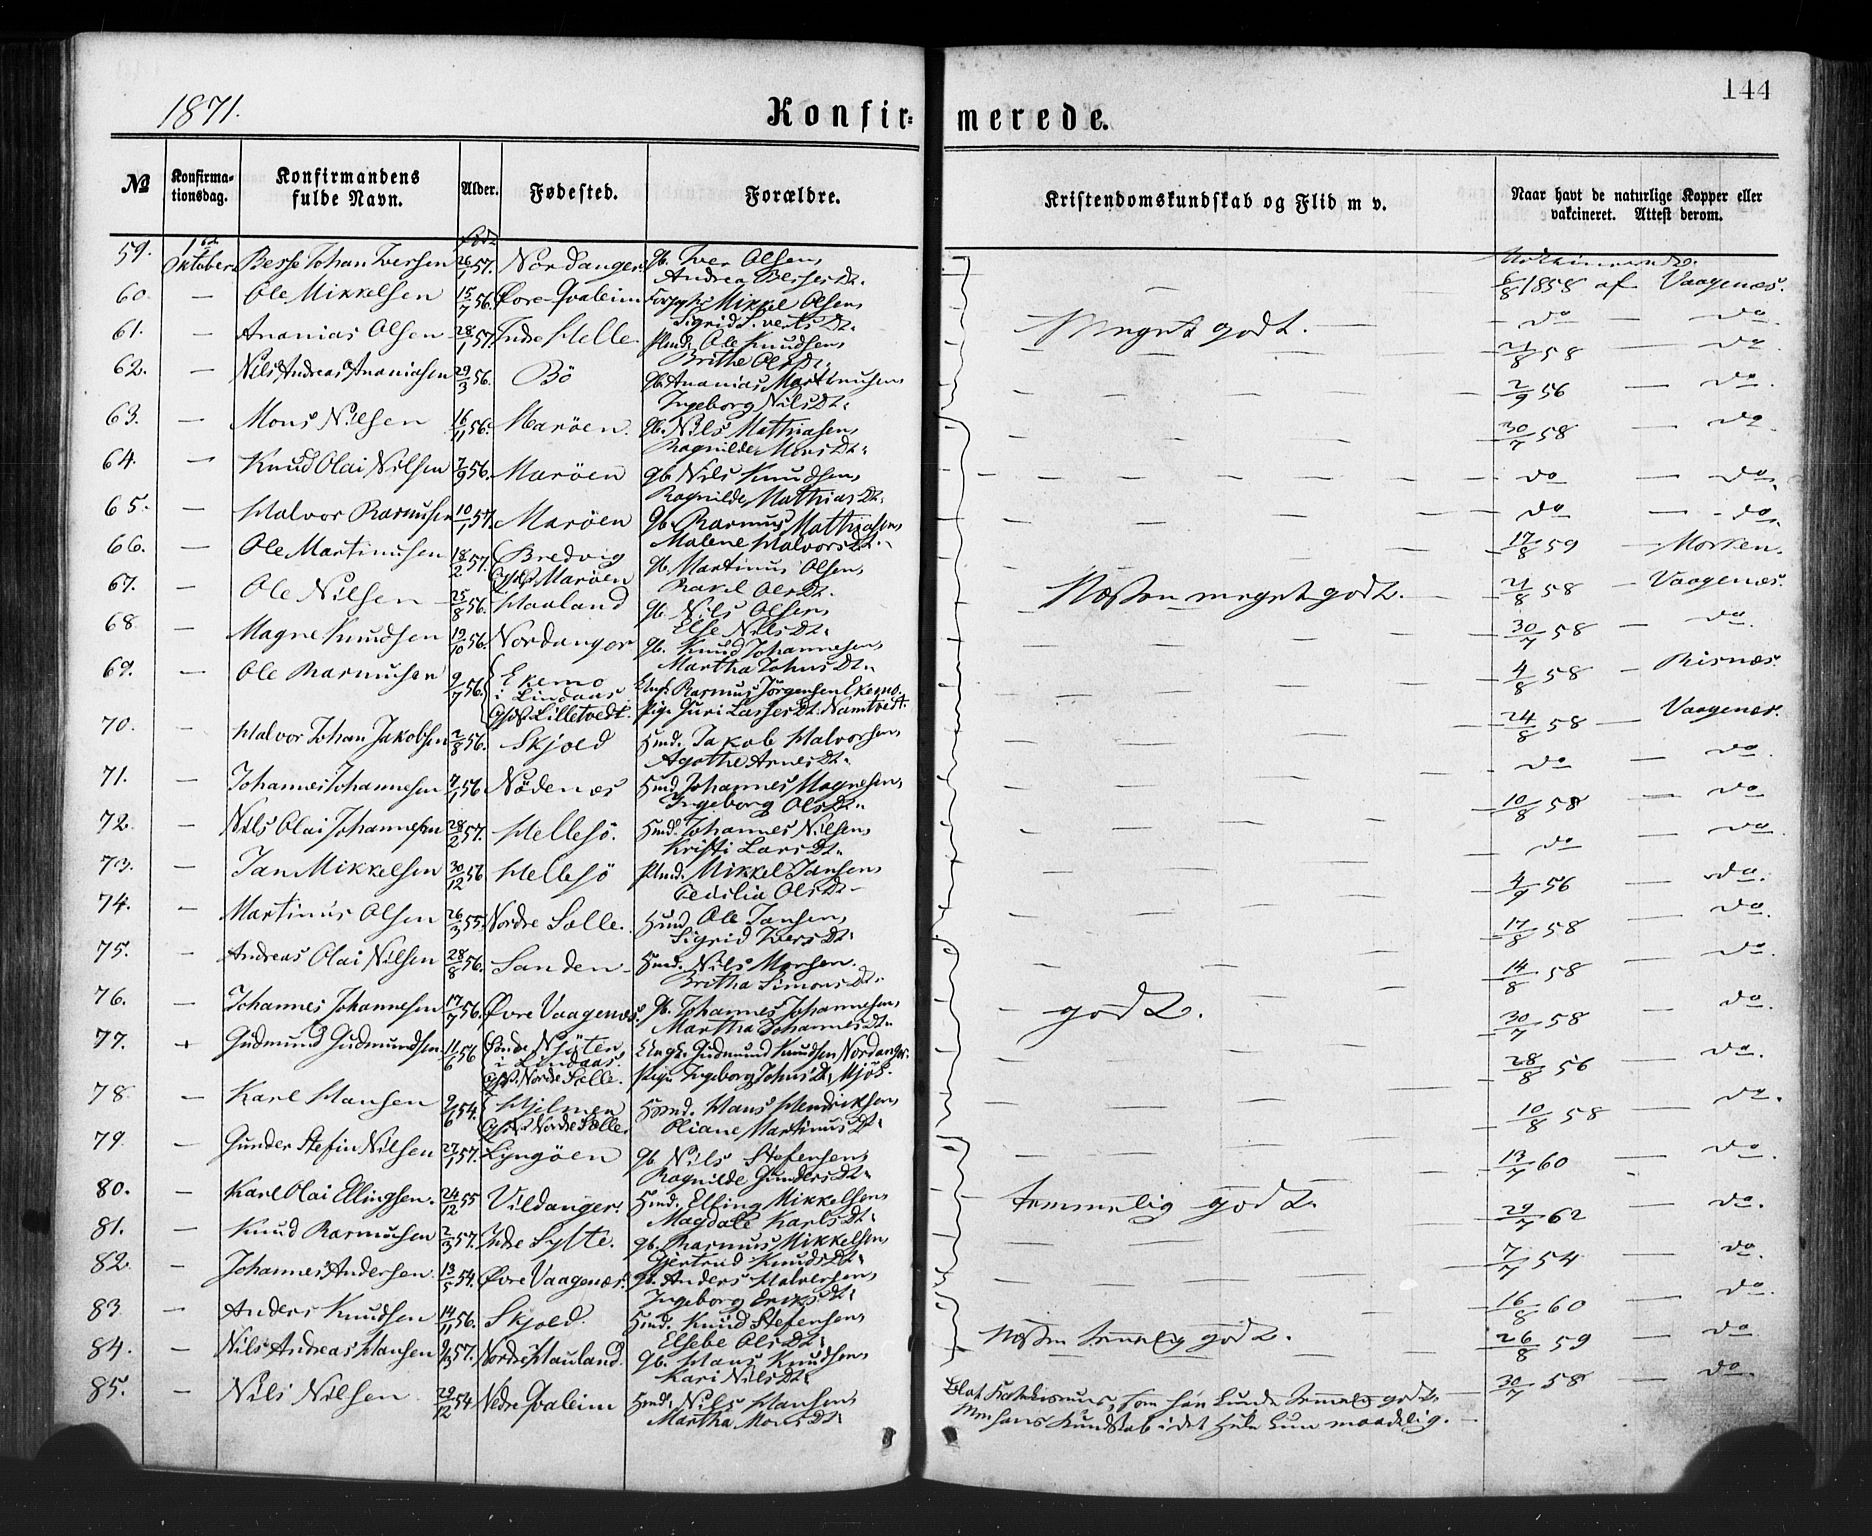 144
1871.
Konfir=
merede.
№
Konfirma-
tionsdag.
Konfirmandens
fulde Navn.
Alder.
Fødested.
Forældre.
Kristendomskundskab og Flid m v.
Naar havt de naturlige Kopper eller
vakcineret. Attest derom.
59. 1 Oktober Berse Johan Iversen 26/1 57. Nordanger gb. Iver Olsen,
Andrea Bersesdt. 6/8 1858 af Vaagenæs.
60. — Ole Mikkelsen 15/7 56. Øvre Qvaleim Mikkel Olsen,
Sigrid Siverts Dt. do — do
61. — Ananias Olsen 28/1 57. Indre Helle. Ole Knudsen,
Brithe Ols Dt. Meget godt. 21/8 58 — do
62. — Nils Andreas Ananiasen 29/3 56. Bö gb. Ananias Martinusen,
Ingeborg Nils Dt. 2/9 56 — do.
63. — Mons Nilsen 16/11 56. Maröen. gb. Nils Mathiasen,
Ragnilde Mons Dt. 30/7 58 — do
64. — Knud Olai Nilsen 7/9 56. Maröen gb. Nils Knudsen,
Ragnilde Mathias Dt. do — do.
65. — Halvor Rasmusen 10/1 57. Maröen gb. Rasmus Mathiasen,
Malene Halvors Dt. do — do.
66. — Ole Martinusen 18/2 57. Bredvig
Maröen gb. Martinus Olsen,
Rakel Ols Dt. 17/8 59 — Morken.
67. — Ole Nilsen 25/8 56. Hauland gb. Nils Olsen,
Else Nils Dt. Næsten meget godt. 21/8 58 — Vaagenæs.
68. — Magne Knudsen 19/10 56. Nordanger gb. Knud Johannesen,
Martha Johns Dt. 30/7 58 — do.
69. — Ole Rasmusen 9/7 56. Ekemo
i Lindaas
Lilletvedt. Rasmus Jörgensen Ekemo.
Pige Guri Lasses Dt. Namtvedt. 4/8 58 — Risnæs.
70. — Halvor Johan Jakobsen 2/8 56. Skjold Hmd. Jakob Halvorsen,
Agathe Arnes Dt. 24/8 58 — Vaagenæs.
71. — Johannes Johannesen 4/1 56 Nödenæs Hmd. Johannes Magnesen,
Ingeborg Ols Dt. do — do
72. — Nils Olai Johannesen 28/2 57. Hellesö. Hmd. Johannes Nilsen,
Kristi Lars Dt. 10/8 58 — do
73. — Jan Mikkelsen 30/12 56 Hellesö Mikkel Jansen,
Cecilia Ols Dt. do — do.
74. — Martinus Olsen 26/3 55. Nordre Sælle. Hmd. Ole Jansen,
Sigrid Ivers Dt. 4/9 56 — do.
75. — Andreas Olai Nilsen 28/8 56. Sanden Hmd. Nils Monsen.
Britha Simons Dt. 17/8 58 — do.
76. — Johannes Johannesen 17/7 56. Øvre Vaagenæs. gb. Johannes Johannesen,
Martha Johannes Dt. godt. 14/8 58 — do.
77. + Gudmund Gudmundsen 11/6 56 Njöten
i Lindaas.
Nordre Sælle. Gudmund Knudsen Nordanger.
Pige Ingeborg Johns Dt. Mjös. 30/7 58 — do
78. — Karl Hansen 9/6 54. Hjelmen
Nordre Sælle. Hmd. Hans Hendriksen,
Oliane Martinus Dt. 28/8 56 — do.
79. — Gunder Stefin Nilsen 27/1 57. Lyngöen gb. Nils Stefensen,
Ragnilde Gunders Dt. 10/8 58 — do.
80. — Karl Olai Ellingsen. 24/12 55 Vildanger. Hmd. Elling Mikkelsen,
Magdale Karls Dt. temmelig godt. 13/7 60 — do.
81. — Knud Rasmusen 2/3 57. Indre Sylte. gb. Rasmus Mikkelsen,
Gjertrud Knuds Dt. 29/7 62 — do.
82. — Johannes Andersen 13/5 54. Øvre Vaagenæs. gb. Anders Halvorsen,
Ingeborg Eriks Dt. 7/7 54 — do.
83. — Anders Knudsen 14/11 56. Skjold. Hmd. Knud Stefensen,
Elsebe Ols Dt. 16/8 60 — do.
84. — Nils Andreas Hansen 9/3 57. Nordre Hauland. gb. Hans Knudsen,
Kari Nils Dt. Næsten temmelig godt. 26/8 59 — do
85. — Nils Nilsen 29/12 54 Nedre Qvaleim Hmd. Nils Hansen,
Martha Mons Dt. som han kunde temmelig godt.
Men hans Kundskab i det Hele kun maadelig. 30/7 58 — do.